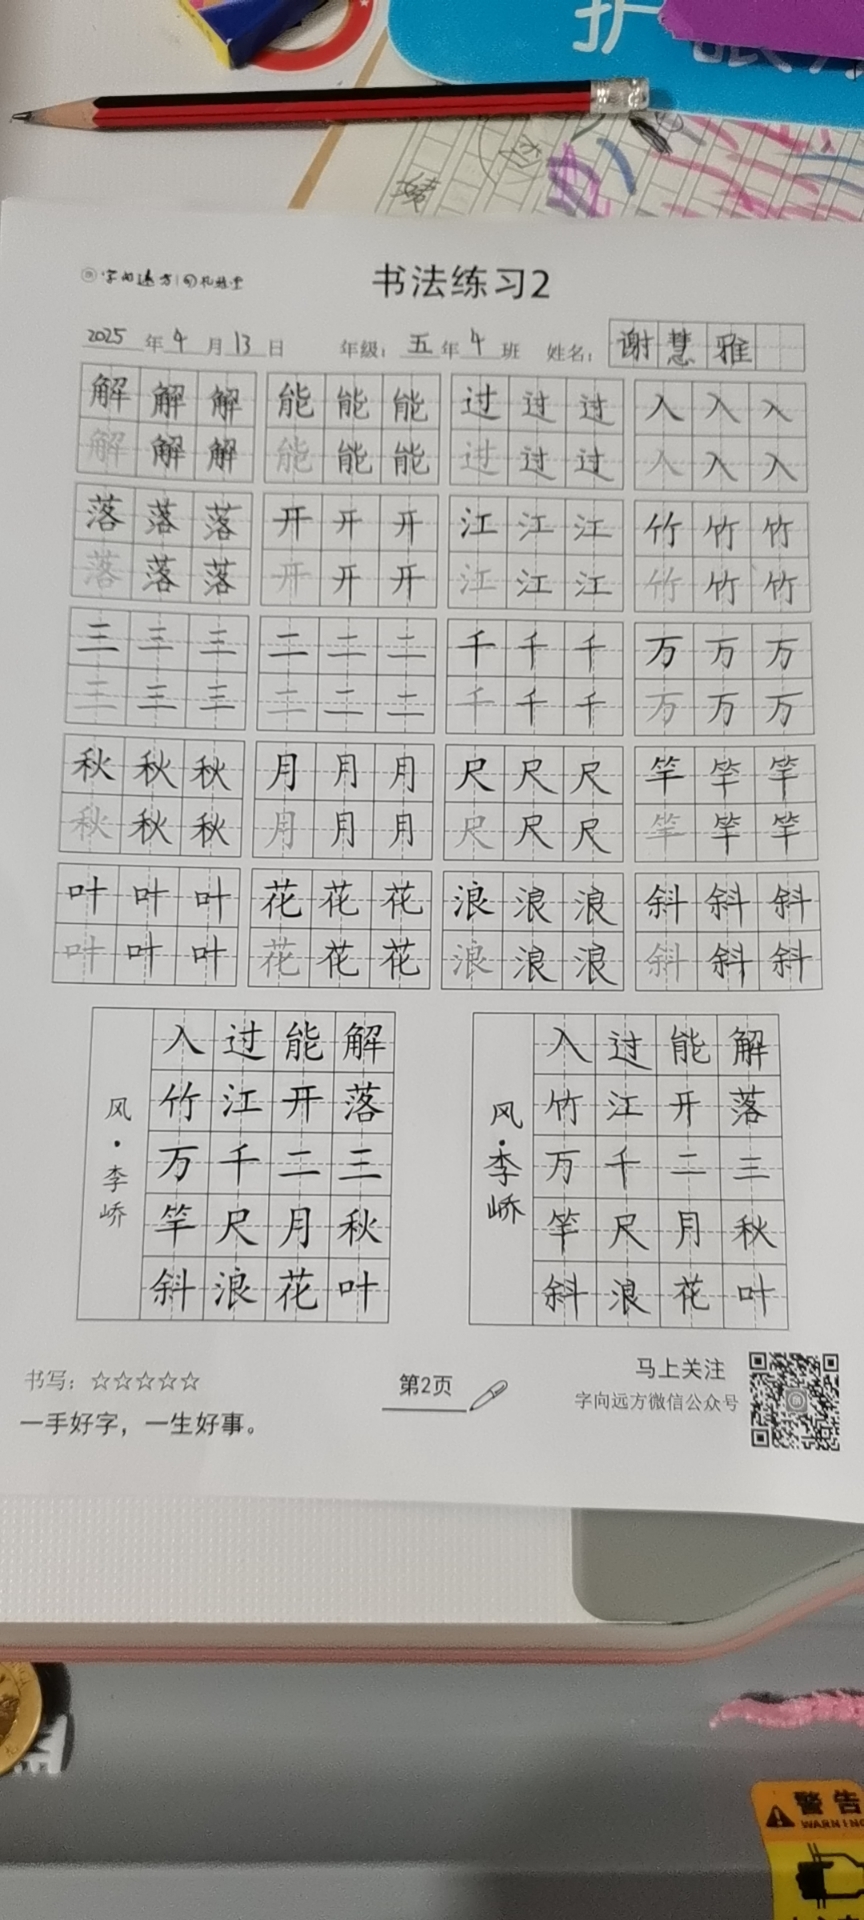 护眼
书法练习2
2025年4月13日 年级：五年4班 姓名：谢慧雅
解解解 能能能 过过过 入入入
解解解 能能能 过过过 入入入
落落落 开开开 江江江 竹竹竹
落落落 开开开 江江江 竹竹竹
三三三 二二二 千千千 万万万
三三三 二二二 千千千 万万万
秋秋秋 月月月 尺尺尺 竿竿竿
秋秋秋 月月月 尺尺尺 竿竿竿
叶叶叶 花花花 浪浪浪 斜斜斜
叶叶叶 花花花 浪浪浪 斜斜斜
解落三秋叶
能开二月花
过江千尺浪
入竹万竿斜
风·李峤
解落三秋叶
能开二月花
过江千尺浪
入竹万竿斜
风·李峤
书写：☆☆☆☆☆
一手好字，一生好事。
第2页
马上关注
字向远方微信公众号
警告
WARNING